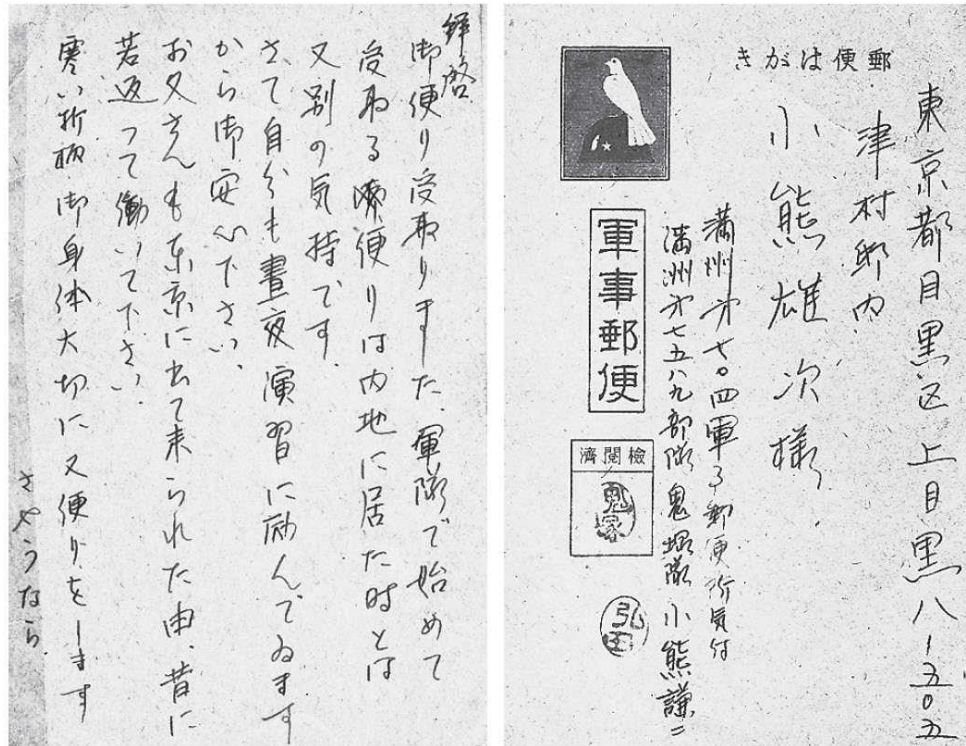 郵便はがき
東京都目黒区上目黒八ー五〇五
津村邸内
小熊雄次様
満州第七〇四軍事郵便所気付
満洲第七五八九部隊鬼塚隊 小熊謙二
軍事郵便
檢閲濟
鬼塚
拝啓
御便り受取りました、軍隊で始めて
受取る便りは内地に居た時とは
又別の気持です。
さて自分も晝夜演習に励んでゐます
から御安心下さい、
お父さんも東京に出て来られた由、昔に
若返って働いて下さい、
寒い折柄御身体大切に又便りをします
さやうなら